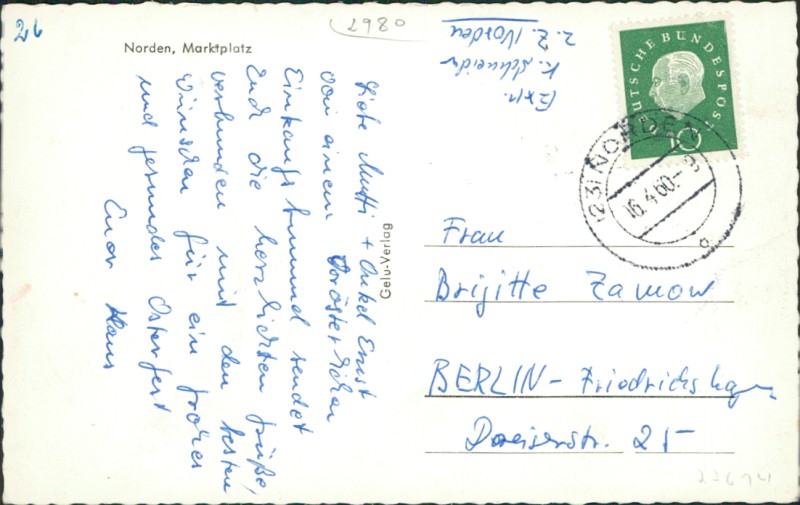 26
2980
Norden, Marktplatz
Liebe Mutti + Onkel Ernst
von einem Vorösterlichen
Einkaufsbummel sendet
Euch die herzlichsten Grüße,
verbunden mit den besten
Wünschen für ein frohes
und gesundes Osterfest
Euer Hans
Gelu-Verlag
Exp.
K. Schneider
z. Z. Norden
DEUTSCHE BUNDESPOST
10
(23) NORDEN
16.4.60-8
a
Frau
Brigitte Zamow
BERLIN-Friedrichshagen
Dreiserstr. 25